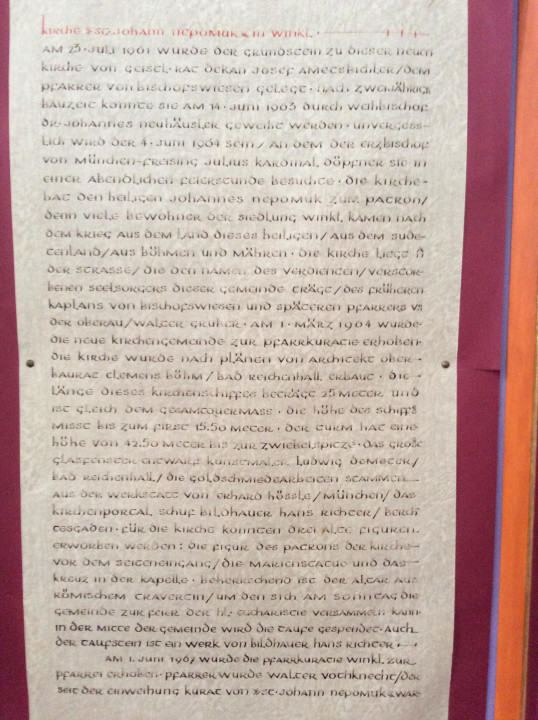 kirche ∗ st. johann nepomuk ∗ in winkl.
AM 23. Juli 1961 wurde der grundstein zu dieser neuen
kirche von geistl. rat dekan josef ametsbichler/dem
pfarrer von bischofswiesen gelegt. nach zweijährige
bauzeit konnte sie am 14. juni 1963 durch weihbischof
dr. johannes neuhäusler geweiht werden. unvergess-
lich wird der 4. juni 1964 sein/an dem der erzbischof
von münchen-freising julius kardinal döpfner sie in
einer abendlichen feierstunde besuchte. die kirche-
hat den heiligen johannes nepomuk zum patron/
denn viele bewohner der siedlung winkl kamen nach
dem krieg aus dem land dieses heiligen/aus dem sude-
tenland/aus böhmen und mähren. die kirche liegt
der strasse/die den namen des verdienten/verstor-
benen seelsorgers dieser gemeinde trägt/des früheren
kaplans von bischofswiesen und späteren pfarrers
der oberau/walter gruber. am 1. märz 1964 wurde-
die neue kirchengemeinde zur pfarrkuratie erhoben.
die kirche wurde nach plänen von architekt ober-
baurat clemens böhm/bad reichenhall erbaut. die-
länge dieses kirchenschiffes beträgt 25 meter und
ist gleich dem gesamtquermass. die höhe des schiffs
misst bis zum first 15.50 meter. der turm hat eine
höhe von 42.50 meter bis zur zwiebelspitze. das große
glasfenster entwarf kunstmaler ludwig demeter/
bad reichenhall/die goldschmiedearbeiten stammen
aus der werkstatt von erhard hössle/münchen/das
kirchenportal schuf bildhauer hans richter/berch
tesgaden. für die kirche konnten drei alte figuren.
erworben werden: die figur des patrons der kirche-
vor dem seiteneingang/die marienstatue und das-
kreuz in der kapelle. beherrschend ist der altar aus
römischem travertin/um den sich am sonntag die
gemeinde zur feier der hl. eucharistie versammeln kann.
in der mitte der gemeinde wird die taufe gespendet. auch
der taufstein ist ein werk von bildhauer hans richter.
am 1. juni 1967 wurde die pfarrkuratie winkl zur
pfarrei erhoben. pfarrer wurde walter vothknecht/der
seit der einweihung kurat von ∗ st. johann nepomuk ∗ war